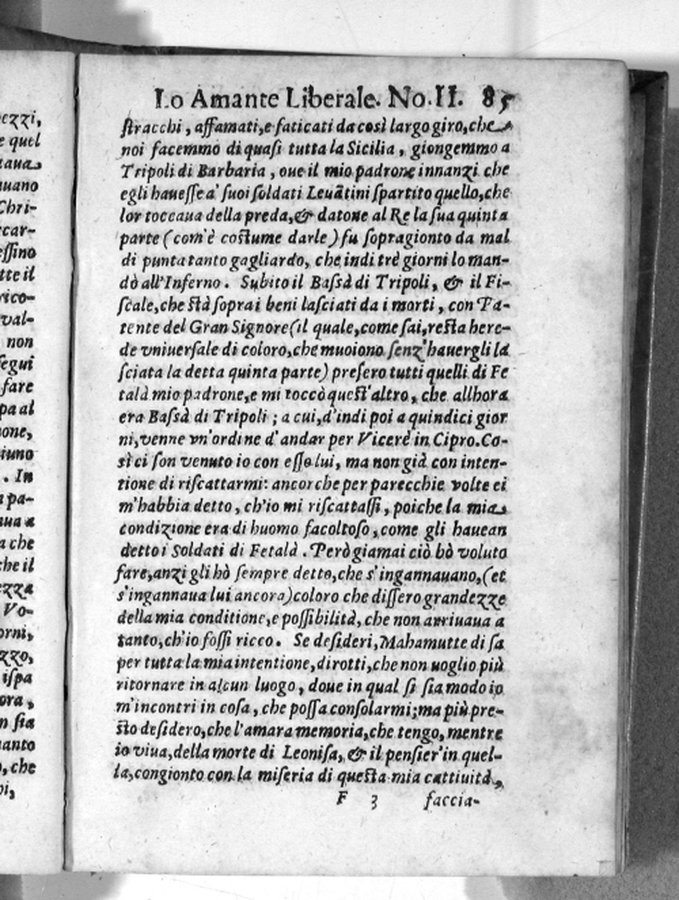 ezzi,
e quel
taua
uano
Chri-
car-
eſſino
tte il
rico-
val-
non
ſegui
fare
pa al
none,
iuno
. In
pa-
nua a
a che
he il
ezza
Vo-
orni,
zzo,
iſpa
ora,
n ſia
uanto
o, che
ni,
Lo Amante Liberale. No. II. 85
ſtracchi, affamati, e faticati da così largo giro, che
noi facemmo di quaſi tutta la Sicilia, giongemmo a
Tripoli di Barbaria, oue il mio padrone innanzi che
egli haueſſe a' ſuoi ſoldati Leuãtini ſpartito quello, che
lor toccaua della preda, & datone al Re la ſua quinta
parte (com'è coſtume darle) fu ſopragionto da mal
di punta tanto gagliardo, che indi trè giorni lo man-
dò all'Inferno. Subito il Baſsà di Tripoli, & il Fi-
ſcale, che ſtà ſopra i beni laſciati da i morti, con Pa-
tente del Gran Signore (il quale, come ſai, reſta here-
de vniuerſale di coloro, che muoiono ſenz' hauergli la
ſciata la detta quinta parte) preſero tutti quelli di Fe
talà mio padrone, e mi toccò queſt'altro, che allhora
era Baſsà di Tripoli; a cui, d'indi poi a quindici gior
ni, venne vn'ordine d'andar per Vicerè in Cipro. Co-
sì ci ſon venuto io con eſſo lui, ma non già con inten-
tione di riſcattarmi: ancorche per parecchie volte ei
m'habbia detto, ch'io mi riſcattaſſi, poiche la mia
condizione era di huomo facoltoſo, come gli hauean
detto i Soldati di Fetalà. Però giamai ciò hò voluto
fare, anzi gli hò ſempre detto, che s'ingannauano, (et
s'ingannaua lui ancora) coloro che diſſero grandezze
della mia conditione, e poſſibilità, che non arriuaua a
tanto, ch'io foſſi ricco. Se deſideri, Mahamutte di ſa
per tutta la mia intentione, dirotti, che non voglio più
ritornare in alcun luogo, doue in qual ſi ſia modo io
m'incontri in coſa, che poſſa conſolarmi; ma più pre-
ſto deſidero, che l'amara memoria, che tengo, mentre
io viua, della morte di Leoniſa, & il penſier'in quel-
la, congionto con la miſeria di queſta mia cattiuità,
F 3 faccia-